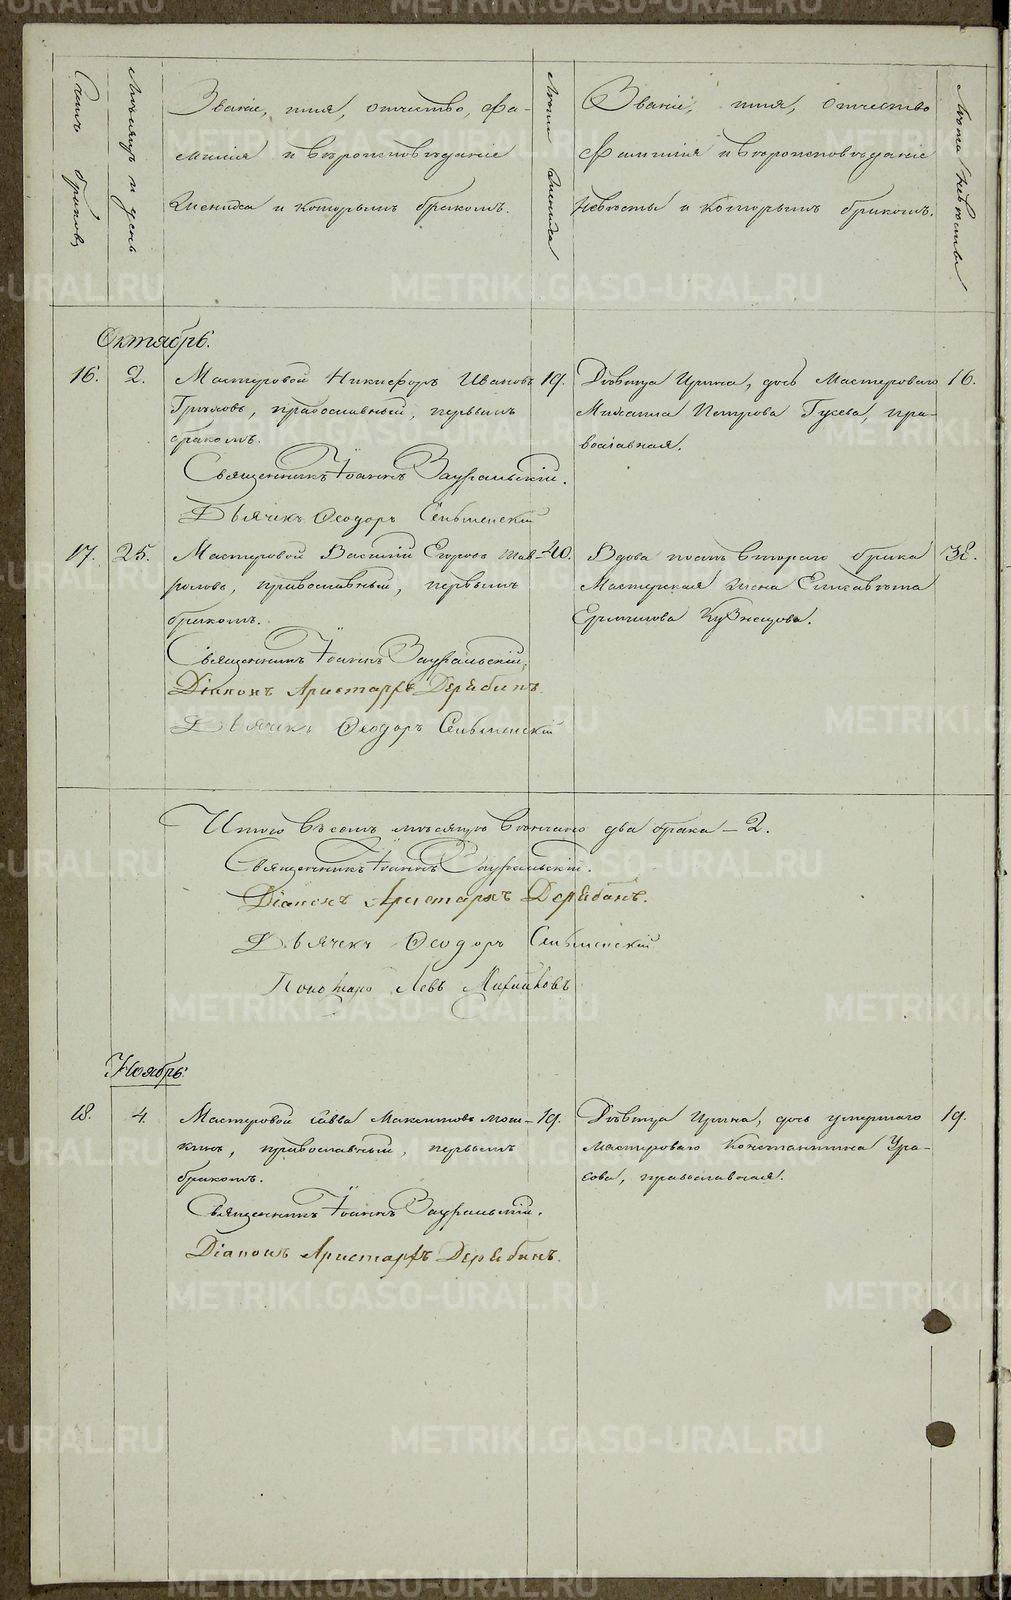 Счетъ браковъ
Мѣсяцъ и день
Званіе, имя, отчество, фа-
милія и вѣроисповѣданіе
жениха и которымъ бракомъ.
Лѣта жениха
Званіе, имя, отчество
фамилія и вѣроисповѣданіе
невѣсты и которымъ бракомъ.
Лѣта невѣсты
Октябрь.
16. 2. Мастеровой Никифоръ Ивановъ 19. Дѣвица Ирина, дочь мастероваго 16.
Грѣховъ, православный, первымъ Михаила Петрова Гусева, пра-
бракомъ. вославная.
Священникъ Іоаннъ Зауральскій.
Дьячекъ Ѳеодоръ Сельменскій
17. 25. Мастеровой Василій Егоровъ 40. Вдова послѣ втораго брака 38.
православный, первымъ Мастерская жена Елисавета
бракомъ. Кузнецова.
Священникъ Іоаннъ Зауральскій.
Діаконъ Аристархъ Дерябинъ.
Дьячекъ Ѳеодоръ Сельменскій
Итого въ семъ мѣсяцѣ вѣнчано два брака – 2.
Священникъ Іоаннъ Зауральскій.
Діаконъ Аристархъ Дерябинъ.
Дьячекъ Ѳеодоръ Сельменскій
Пономарь Левъ
Ноябрь.
18. 4. Мастеровой Савва Максимовъ Мош- 19. Дѣвица Ирина, дочь умершаго 19.
кинъ, православный, первымъ мастероваго Константина Ура-
бракомъ. сова, православная.
Священникъ Іоаннъ Зауральскій.
Діаконъ Аристархъ Дерябинъ.
METRIKI.GASO-URAL.RU